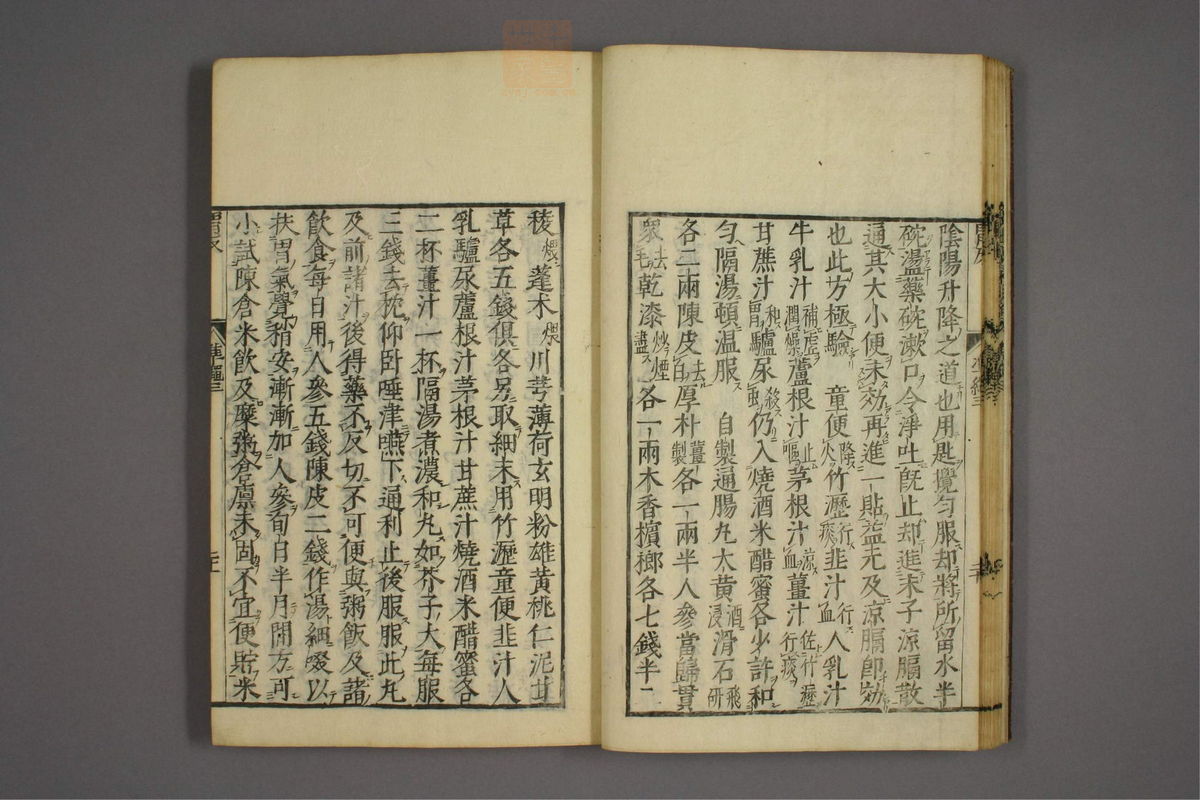 陰陽升降之道也用匙攪勻服却將所留水半
碗溫藥碗漱口令淨吐旣止却進末子涼膈散
通其大小便未効再進一貼益元及涼膈卽効
也此方極驗 童便降火竹瀝行痰韭汁行血人乳汁
牛乳汁補虛潤燥蘆根汁止嘔茅根汁涼血薑汁佐竹瀝行痰
甘蔗汁和胃驢尿殺虫仍入燒酒米醋蜜各少許和
勻隔湯頓温服 自製通腸丸大黃酒浸滑石飛研
各二兩陳皮去白厚朴薑製各一兩半人參當歸貫
衆去毛乾漆炒煙盡各一兩木香檳榔各七錢半三
稜煨蓬朮煨川芎薄荷玄明粉雄黃桃仁泥甘
草各五錢俱各另取細末用竹瀝童便韭汁人
乳驢尿蘆根汁茅根汁甘蔗汁燒酒米醋蜜各
一杯薑汁一杯隔湯煮濃和丸如芥子大每服
三錢去枕仰卧唾津嚥下通利止後服服此丸
及前諸汁後得藥不反切不可便與粥飯及諸
飲食每日用人參五錢陳皮二錢作湯細啜以
扶胃氣覺稍安漸漸加人參旬日半月開方可
小試陳倉米飲及糜粥倉廩未固不宜便貯米